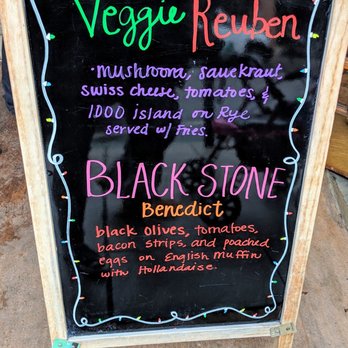 Veggie Reuben
• mushroom, sauekraut,
swiss cheese, tomatoes, &
1000 island on Rye
served w/ Fries.
BLACK STONE
Benedict
black olives, tomatoes,
bacon strips, and poached
eggs on English Muffin
with Hollandaise.